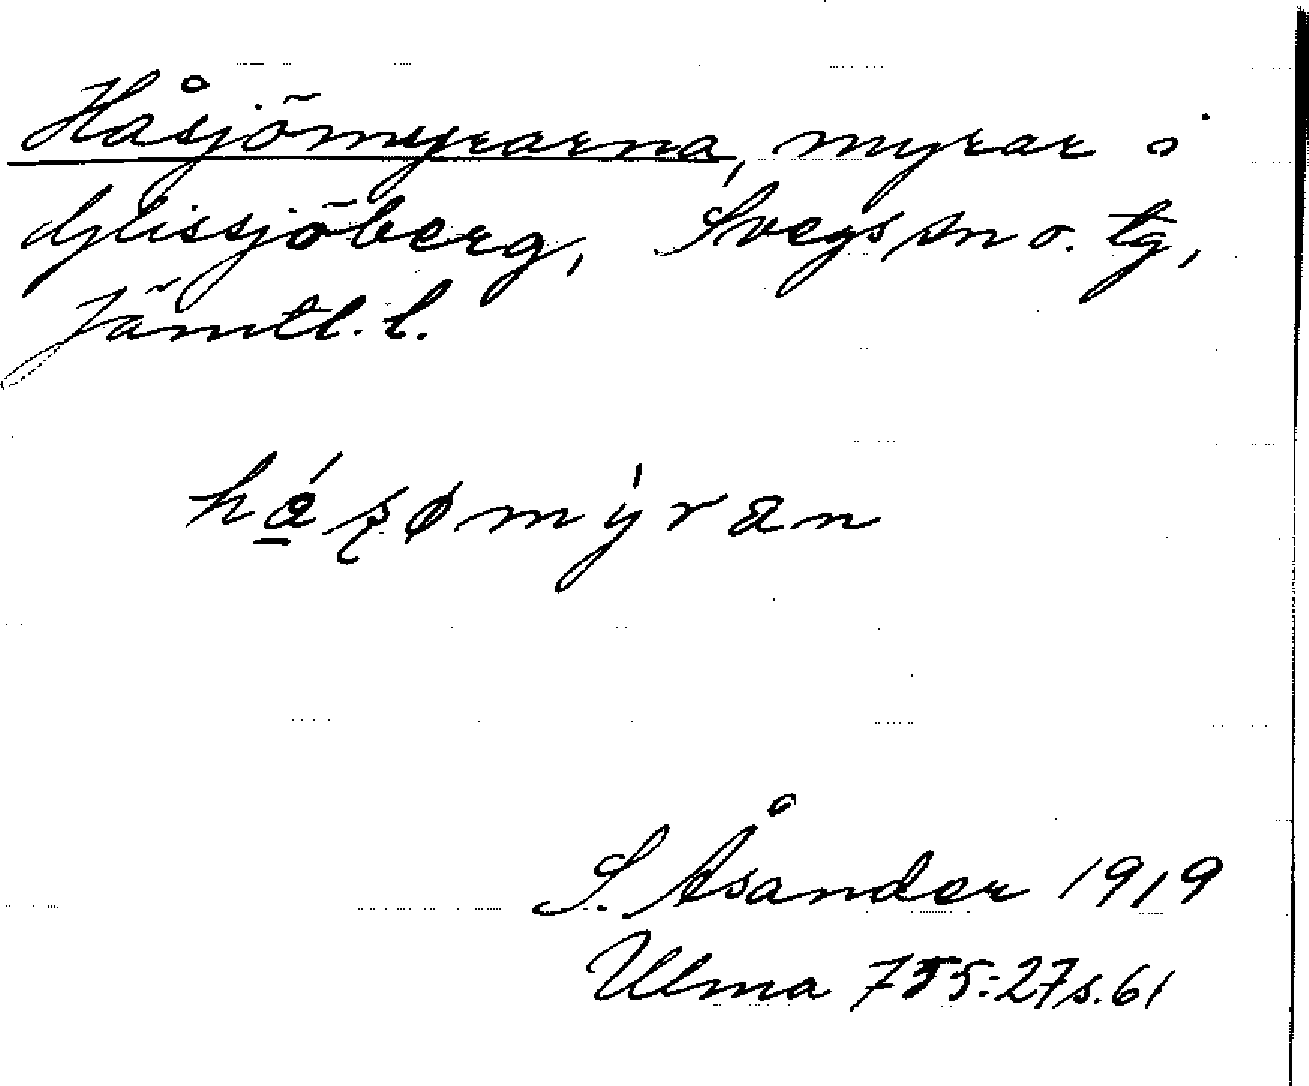 Håsjömyrarna, myrar i
Glissjöberg, Svegs sn o. tg,
Jämtl. l.
hásømýran
S. Åsander 1919
Ulma 755:27 s. 61